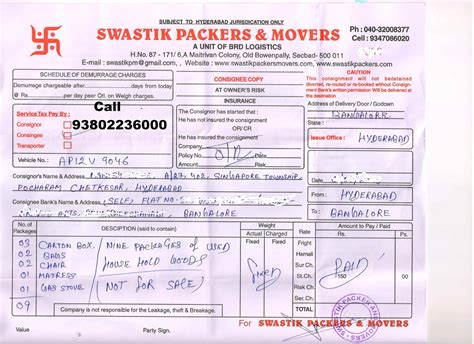 SUBJECT TO HYDERABAD JURISDICATION ONLY
SWASTIK PACKERS & MOVERS
A UNIT OF BRD LOGISTICS
H.No. 87 - 171/ 6,A Maitrivan Colony, Old Bowenpally, Secbad- 500 011
E-mail : swastikpm@gmail.com, Website : www.swastikpackersmovers.com, www.swastikpackers.com
Ph : 040-32008377
Cell : 9347086020
SCHEDULE OF DEMURRAGE CHARGES
Demurrage chargeable after days from today
@ Rs. per day peer Qtl. on Weigh charges.
Call
93802236000
Service Tax Pay By :
Consignor
Consingee
Transporter
Vehicle No. : AP12V 9046
CONSIGNEE COPY
AT OWNER'S RISK
INSURANCE
The Consignor has started that :
He has not insured the consignment
OR/CR
He has insured the consignment
Company
Policy No. Date
Amount Risk
CAUTION
This consignment will not be
diverted, re-routed or re-booked without Consignment
Bank's written permission Will be delivered at
the destination
Address of Delivery Door / Godown
BANGALORE
Issue Office : HYDERABAD
Consignor's Name & Address A/27, 402, SINGAPORE TOWNSHIP
POCHARAM, HYDERABAD
From HYDERABAD
Consignee Bank's Name & Address (SELF) FLAT NO
BANGALORE
To BANGALORE
No. of Packages
DESCIPTION (said to contain)
Weight
Actual
Charged
Amount
Rs.
Ps.
Fixed
Fixed
03 CARTON BOX.
02 BAGS
02 CHAIR
01 MATRESS
01 GAS STOVE
09
NINE PACKAGES OF USED
HOUSE HOLD GOODS
(NOT FOR SALE)
Fixed
Freight
Hamali
Sur Ch.
St.Ch.
R. Ch.
Total
PAID
150
00
Company is not responsible for the Leakage, theft & Breakage.
Value
Party Sign.
For SWASTIK PACKERS & MOVERS